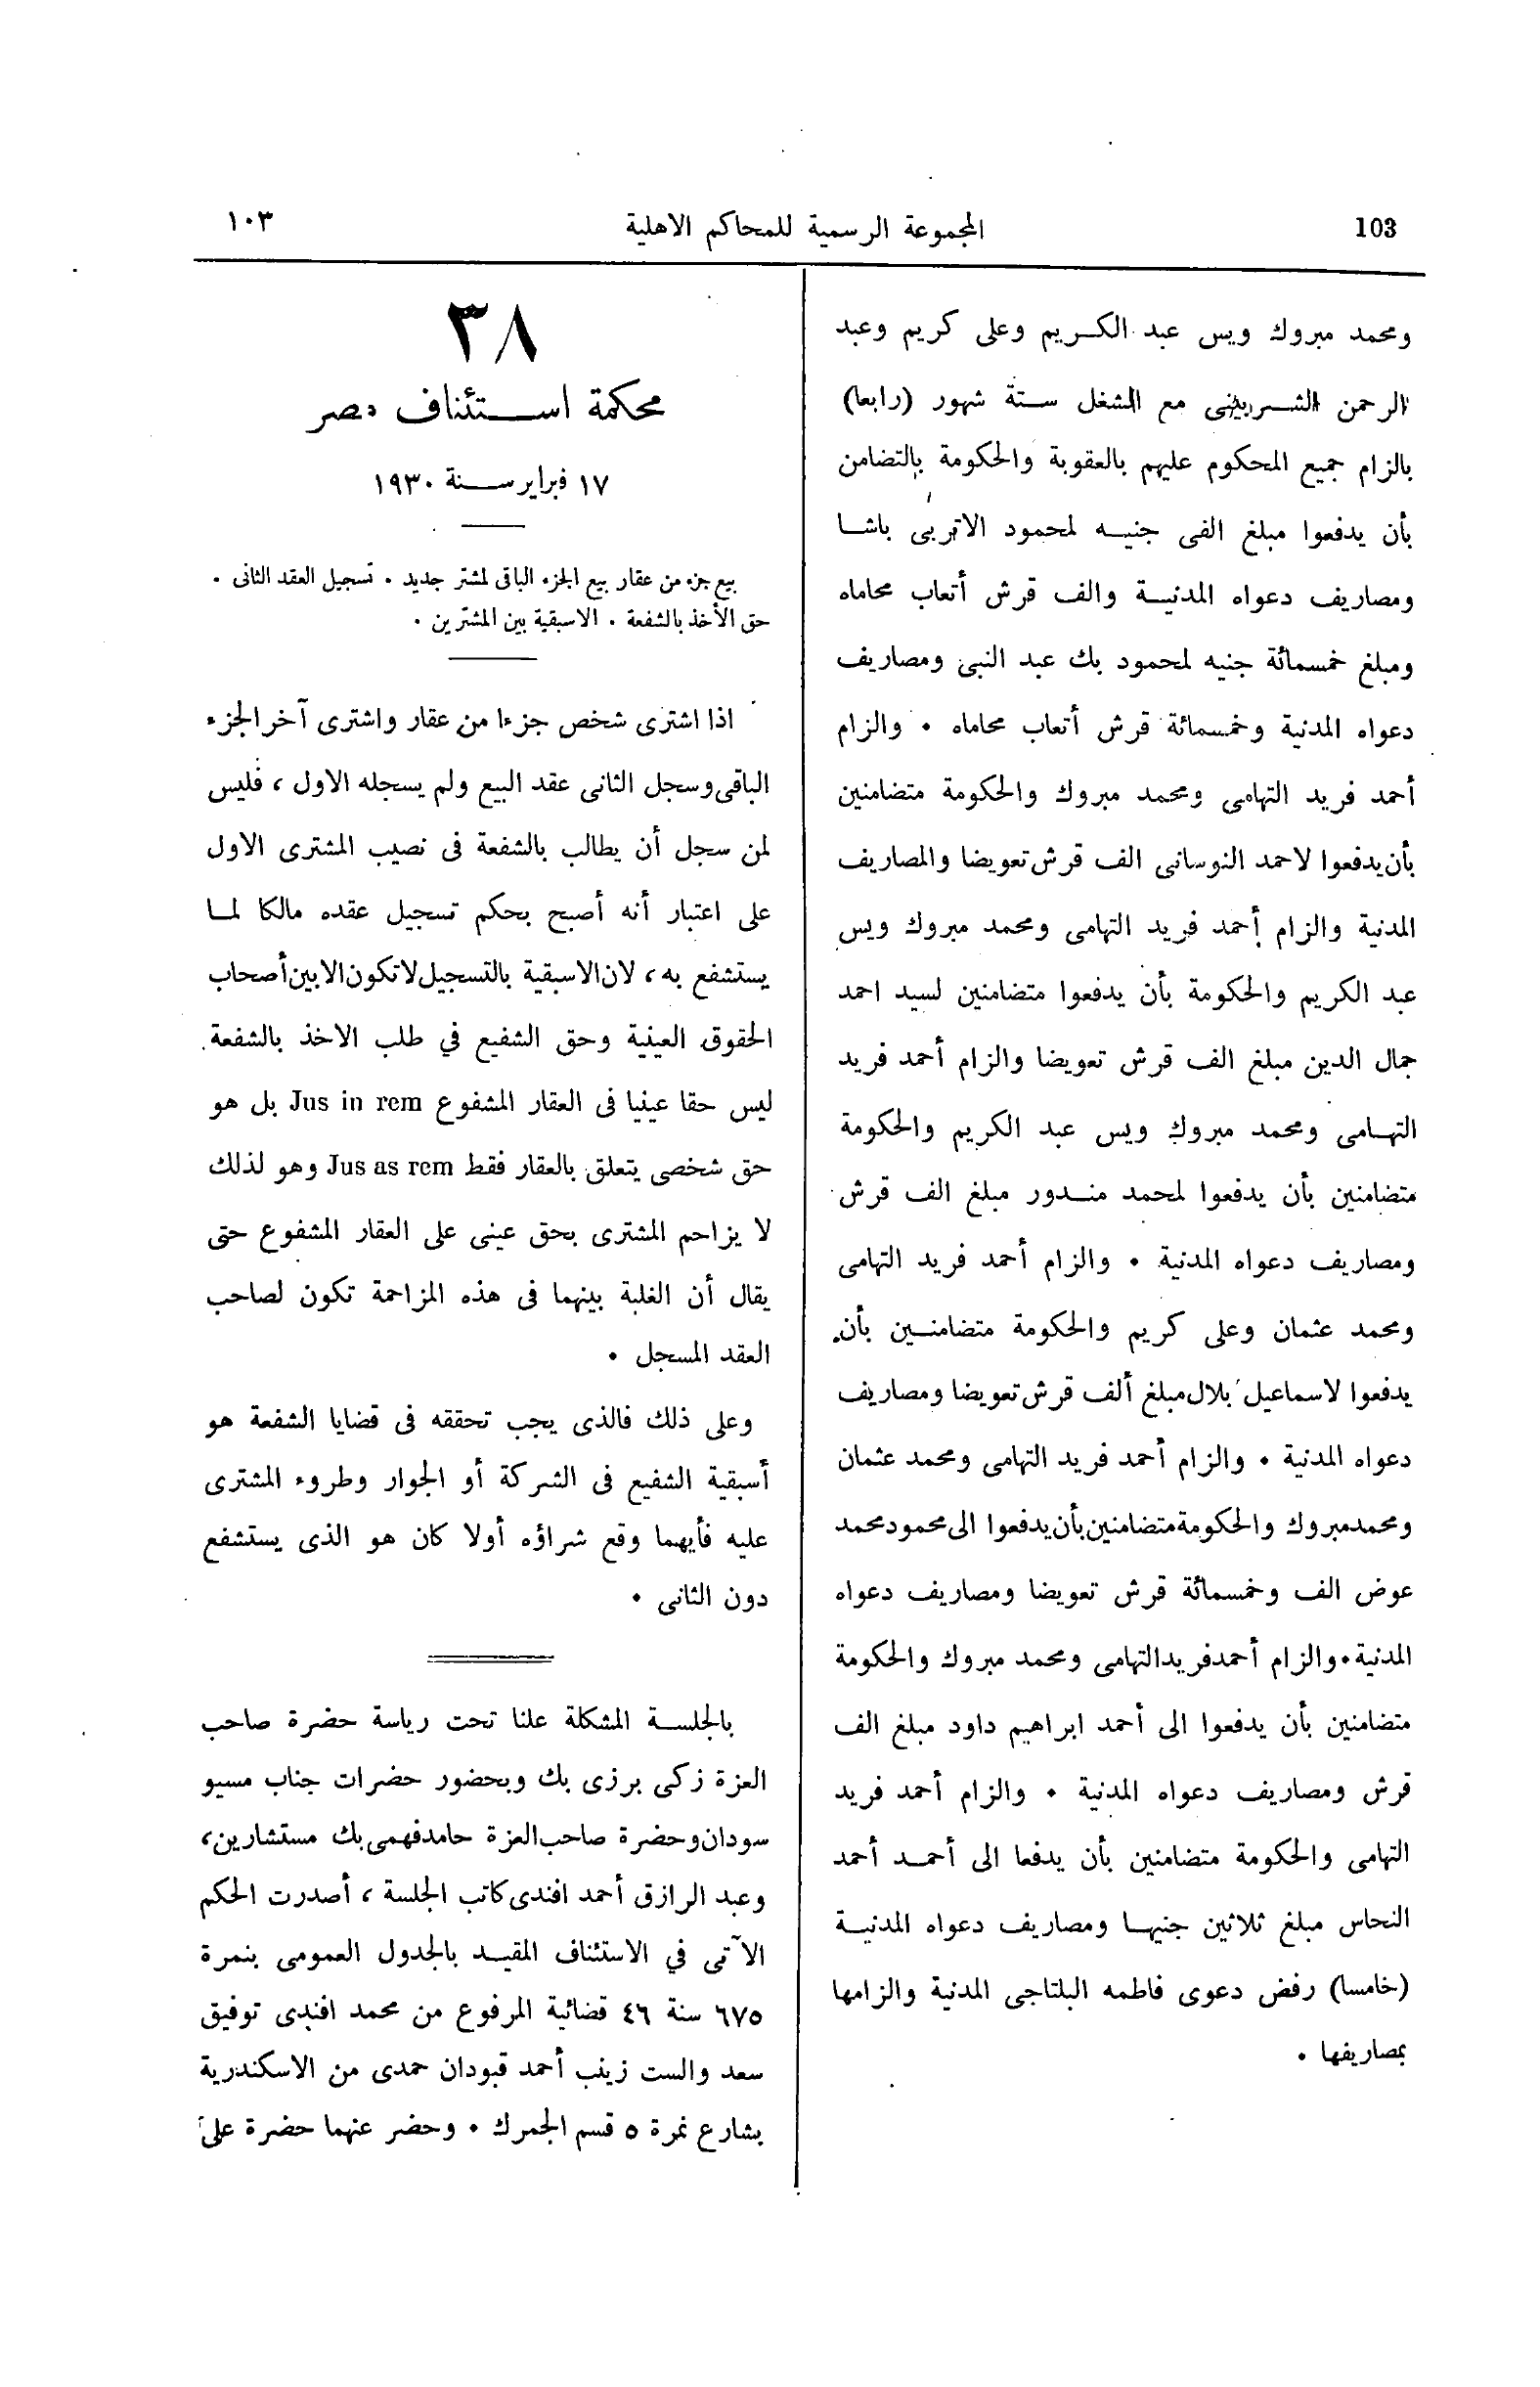 103
المجموعة الرسمية للمحاكم الاهلية
١٠٣
ومحمد مبروك ويس عبد الكريم وعلى كريم وعبد
الرحمن الشربينى مع الشغل ستة شهور (رابعا)
بالزام جميع المحكوم عليهم بالعقوبة والحكومة بالتضامن
بأن يدفعوا مبلغ الفى جنيه لمحمود الاتربى باشا
ومصاريف دعواه المدنية والف قرش أتعاب محاماه
ومبلغ خمسمائة جنيه لمحمود بك عبد النبى ومصاريف
دعواه المدنية وخمسمائة قرش أتعاب محاماه . والزام
أحمد فريد التهامى ومحمد مبروك والحكومة متضامنين
بأن يدفعوا لاحمد النوسانى الف قرش تعويضا والمصاريف
المدنية والزام أحمد فريد التهامى ومحمد مبروك ويس
عبد الكريم والحكومة بأن يدفعوا متضامنين لسيد احمد
جمال الدين مبلغ الف قرش تعويضا والزام أحمد فريد
التهامى ومحمد مبروك ويس عبد الكريم والحكومة
متضامنين بأن يدفعوا لمحمد مندور مبلغ الف قرش
ومصاريف دعواه المدنية . والزام أحمد فريد التهامى
ومحمد عثمان وعلى كريم والحكومة متضامنين بأن
يدفعوا لاسماعيل بلال مبلغ ألف قرش تعويضا ومصاريف
دعواه المدنية . والزام أحمد فريد التهامى ومحمد عثمان
ومحمد مبروك والحكومة متضامنين بأن يدفعوا الى محمود محمد
عوض الف وخمسمائة قرش تعويضا ومصاريف دعواه
المدنية . والزام أحمد فريد التهامى ومحمد مبروك والحكومة
متضامنين بأن يدفعوا الى أحمد ابراهيم داود مبلغ الف
قرش ومصاريف دعواه المدنية . والزام أحمد فريد
التهامى والحكومة متضامنين بأن يدفعا الى أحمد أحمد
النحاس مبلغ ثلاثين جنيها ومصاريف دعواه المدنية
(خامسا) رفض دعوى فاطمه البلتاجى المدنية والزامها
بمصاريفها .
٣٨
محكمة استئناف مصر
١٧ فبراير سنة ١٩٣٠
بيع جزء من عقار بيع الجزء الباقى لمشتر جديد . تسجيل العقد الثانى .
حق الأخذ بالشفعة . الاسبقية بين المشترين .
اذا اشترى شخص جزءا من عقار واشترى آخر الجزء
الباقى وسجل الثانى عقد البيع ولم يسجله الاول ، فليس
لمن سجل أن يطالب بالشفعة فى نصيب المشترى الاول
على اعتبار أنه أصبح بحكم تسجيل عقده مالكا لما
يستشفع به ، لان الاسبقية بالتسجيل لا تكون الا بين أصحاب
الحقوق العينية وحق الشفيع في طلب الاخذ بالشفعة
ليس حقا عينيا فى العقار المشفوع Jus in rem بل هو
حق شخصى يتعلق بالعقار فقط Jus as rem وهو لذلك
لا يزاحم المشترى بحق عينى على العقار المشفوع حتى
يقال أن الغلبة بينهما فى هذه المزاحمة تكون لصاحب
العقد المسجل .
وعلى ذلك فالذى يجب تحققه فى قضايا الشفعة هو
أسبقية الشفيع فى الشركة أو الجوار وطروء المشترى
عليه فأيهما وقع شراؤه أولا كان هو الذى يستشفع
دون الثانى .
بالجلسة المشكلة علنا تحت رياسة حضرة صاحب
العزة زكى برزى بك وبحضور حضرات جناب مسيو
سودان وحضرة صاحب العزة حامد فهمى بك مستشارين ،
وعبد الرازق أحمد افندى كاتب الجلسة ، أصدرت الحكم
الآتى في الاستئناف المقيد بالجدول العمومى بنمرة
٦٧٥ سنة ٤٦ قضائية المرفوع من محمد افندى توفيق
سعد والست زينب أحمد قبودان حمدى من الاسكندرية
بشارع نمرة ٥ قسم الجمرك . وحضر عنهما حضرة على